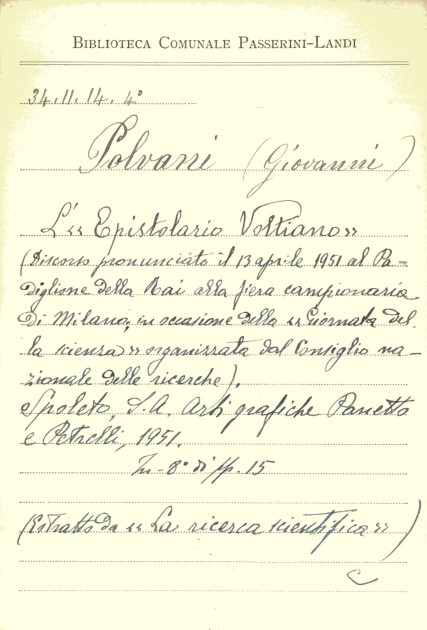 BIBLIOTECA COMUNALE PASSERINI-LANDI
34.11.14.4°
Polvani (Giovanni)
L'« Epistolario Voltiano»
(Discorso pronunciato il 13 aprile 1951 al Pa-
diglione della Rai alla fiera campionaria
di Milano, in occasione della « Giornata del-
la scienza» organizzata dal Consiglio na-
zionale delle ricerche).
Spoleto, S.A. Arti grafiche Panetto
e Petrelli, 1951.
In-8° di pp. 15
(Estratto da « La ricerca scientifica»)
C